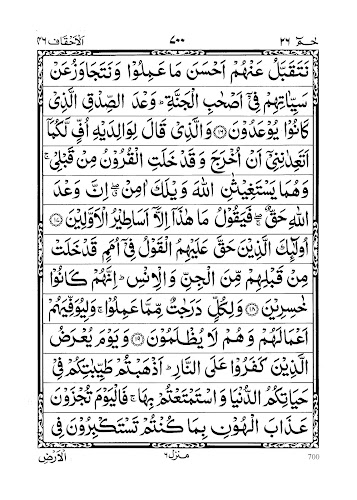 حٰمٓ ٢٦ ٧٠٠ الاحقاف ٤٦
نَتَقَبَّلُ عَنْهُمْ اَحْسَنَ مَا عَمِلُوْا وَنَتَجَاوَزُ عَنْ
سَيِّاٰتِهِمْ فِيْٓ اَصْحٰبِ الْجَنَّةِ ؕ وَعْدَ الصِّدْقِ الَّذِيْ
كَانُوْا يُوْعَدُوْنَ ﴿١٦﴾ وَالَّذِيْ قَالَ لِوَالِدَيْهِ اُفٍّ لَّكُمَآ
اَتَعِدٰنِنِيْٓ اَنْ اُخْرَجَ وَقَدْ خَلَتِ الْقُرُوْنُ مِنْ قَبْلِيْ ۚ
وَهُمَا يَسْتَغِيْثٰنِ اللّٰهَ وَيْلَكَ اٰمِنْ ۖ اِنَّ وَعْدَ
اللّٰهِ حَقٌّ ۚ فَيَقُوْلُ مَا هٰذَآ اِلَّآ اَسَاطِيْرُ الْاَوَّلِيْنَ ﴿١٧﴾
اُولٰٓئِكَ الَّذِيْنَ حَقَّ عَلَيْهِمُ الْقَوْلُ فِيْٓ اُمَمٍ قَدْ خَلَتْ
مِنْ قَبْلِهِمْ مِّنَ الْجِنِّ وَالْاِنْسِ ؕ اِنَّهُمْ كَانُوْا
خٰسِرِيْنَ ﴿١٨﴾ وَلِكُلٍّ دَرَجٰتٌ مِّمَّا عَمِلُوْا ۚ وَلِيُوَفِّيَهُمْ
اَعْمَالَهُمْ وَهُمْ لَا يُظْلَمُوْنَ ﴿١٩﴾ وَيَوْمَ يُعْرَضُ
الَّذِيْنَ كَفَرُوْا عَلَى النَّارِ ؕ اَذْهَبْتُمْ طَيِّبٰتِكُمْ فِيْ
حَيَاتِكُمُ الدُّنْيَا وَاسْتَمْتَعْتُمْ بِهَا ۚ فَالْيَوْمَ تُجْزَوْنَ
عَذَابَ الْهُوْنِ بِمَا كُنْتُمْ تَسْتَكْبِرُوْنَ فِي
الْاَرْضِ منزل ٦ 700